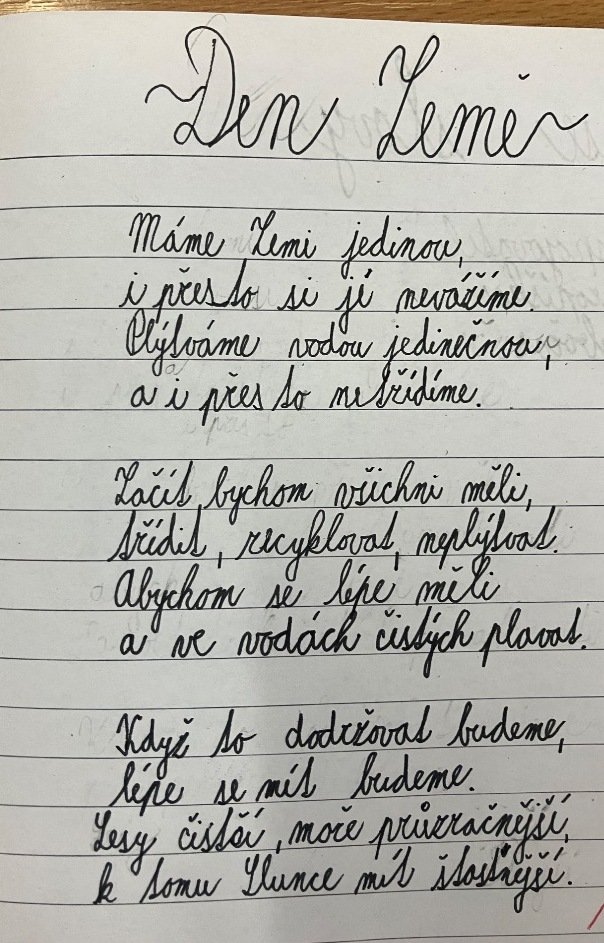 ~Den Země~
Máme Zemi jedinou,
i přesto si jí nevážíme.
Plýtváme vodou jedinečnou,
a i přes to netřídíme.
Začít bychom všichni měli,
třídit, recyklovat, neplýtvat.
Abychom se lépe měli
a ve vodách čistých plavat.
Když to dodržovat budeme,
lépe se mít budeme.
Lesy čistší, moře průzračnější,
k tomu Slunce mít šťastnější.